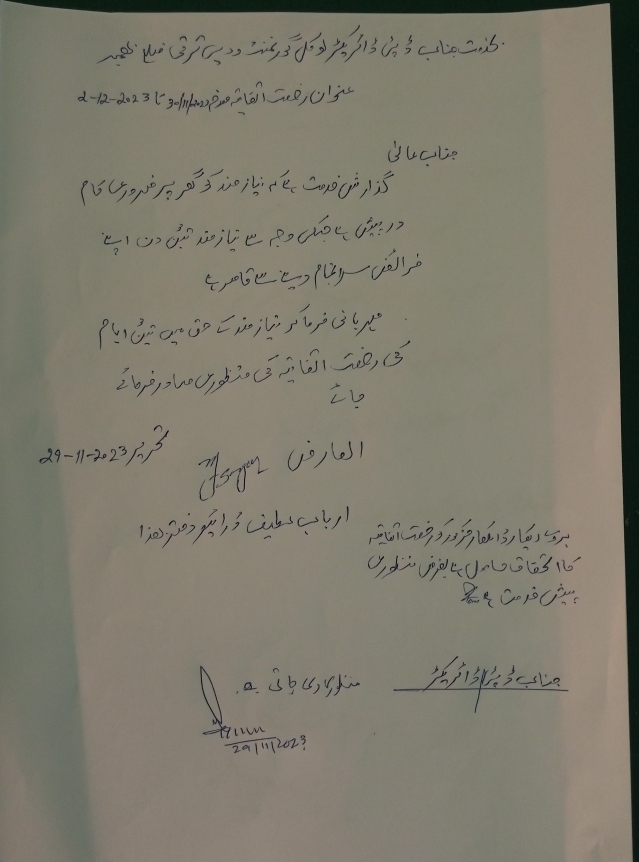 بخدمت جناب ڈپٹی ڈائریکٹر لوکل گورنمنٹ و دیہی ترقی ضلع
عنوان رخصت اتفاقیہ مورخہ 30/11/2023 تا 2-12-2023
جناب عالی
گذارش خدمت ہے کہ نیازمند کو گھر پر ضروری کام
درپیش ہے جسکی وجہ سے نیازمند تین دن اپنے
فرائض سرانجام دینے سے قاصر ہے
مہربانی فرما کر نیازمند کے حق میں تین ایام
کی رخصت اتفاقیہ کی منظوری صادر فرمائے
جائے
تحریر 29-11-2023
العارض
ارباب عطیف ڈرائیور دفتر ھذا
بروئے ریکارڈ اہلکار مذکور کو رخصت اتفاقیہ
کا استحقاق حاصل ہے بغرض منظوری
پیش خدمت ہے
جناب ڈپٹی ڈائریکٹر
منظور کی جاتی ہے.
29/11/2023